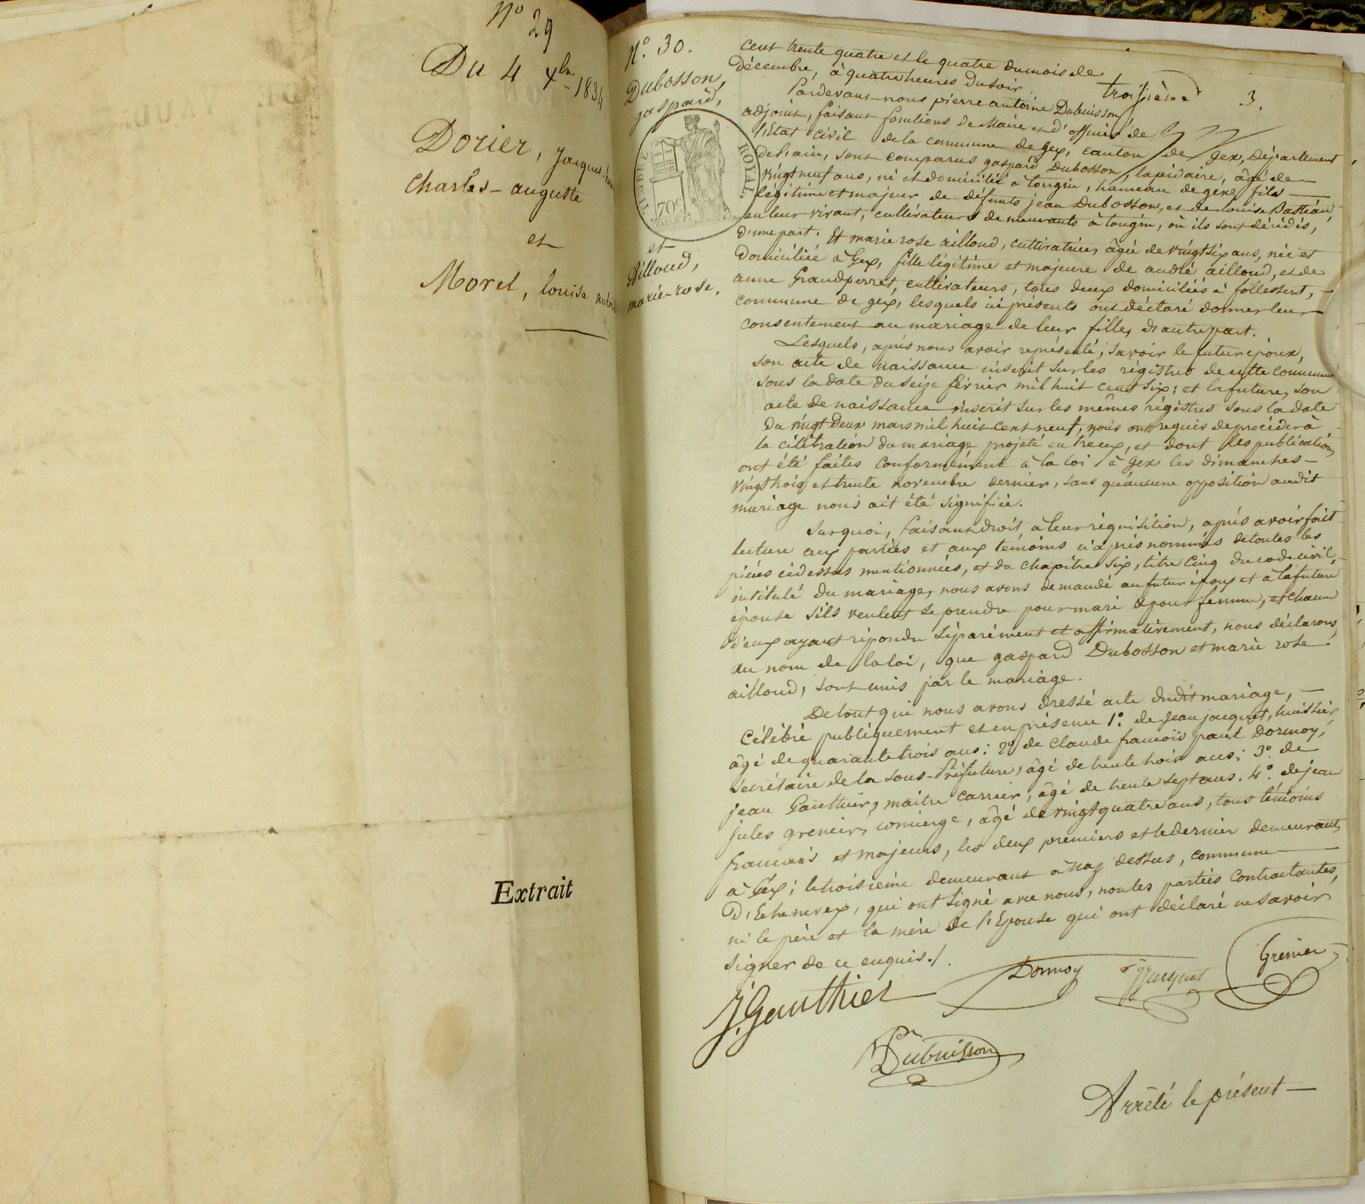 N° 29
Du 4 xbre 1834
Dorier, Jacques
Charles-auguste
et
Morel, louise
Extrait
N° 30.
Dubosson,
gaspard,
TIMBRE ROYAL
70c
et
Ailloud,
marie-rose.
troisième 3.
cent trente quatre et le quatre du mois de
décembre, à quatre heures du soir.
Pardevant nous pierre antoine Dubuisson
adjoint, faisant fonctions de Maire et d'officier de
l'Etat civil de la commune de gex, canton de gex, département
de l'ain, sont comparus gaspard Dubosson, lapidaire, âgé de
vingt neuf ans, né et domicilié à tougin, hameau de gex, fils
légitime et majeur de défunts jean Dubosson, et de louise Bastian,
en leur vivant, cultivateurs demeurants à tougin, où ils sont décédés,
d'une part. Et marie rose ailloud, cultivatrice, âgée de vingt six ans, née et
domiciliée à Gex, fille légitime et majeure de andré ailloud, et de
anne Grandperret, cultivateurs, tous deux domiciliés à follestert,
commune de gex, lesquels ici présents ont déclaré donner leur
consentement au mariage de leur fille, d'autre part.
Lesquels, après nous avoir représenté, savoir le futur époux,
son acte de naissance inscrit sur les régistres de cette commune
sous la date du seize février mil huit cent six; et la future, son
acte de naissance inscrit sur les mêmes régistres sous la date
du vingt deux mars mil huit cent neuf, nous ont requis de procéder à
la célébration du mariage projeté entr'eux, et dont les publications
ont été faites conformément à la loi à Gex les dimanches
vingt trois et trente novembre dernier, sans qu'aucune opposition audit
mariage nous ait été signifiée.
Sur quoi, faisant droit à leur réquisition, après avoir fait
lecture aux parties et aux témoins ci après nommés de toutes les
pièces ci dessus mentionnées, et du chapitre six, titre cinq du code civil,
intitulé du mariage, nous avons demandé au futur époux et à la future
épouse s'ils veulent se prendre pour mari et pour femme, et chacun
d'eux ayant répondu séparément et affirmativement, nous déclarons,
au nom de la loi, que gaspard Dubosson et marie rose
ailloud, sont unis par le mariage.
De tout qui nous avons dressé acte dudit mariage,
célébré publiquement et en présence 1° de Jean jacquet, huissier,
âgé de quarante trois ans; 2° de Claude francois paul Dormoy,
secrétaire de la sous-Préfecture, âgé de trente trois ans; 3° de
jean Gauthier, maitre carrier, âgé de trente sept ans. 4° de jean
jules grenier, concierge, âgé de vingt quatre ans, tous témoins
francais et majeurs, les deux premiers et le dernier demeurants
à Gex; le troisième demeurant à naz dessus, commune
D'Echenevex, qui ont signé avec nous, non les parties contractantes,
ni le père et la mère de l'Epouse qui ont déclaré ne savoir
signer de ce enquis./.
J. Gauthier Dormoy Jacquet Grenier
Dubuisson
Arrêté le présent